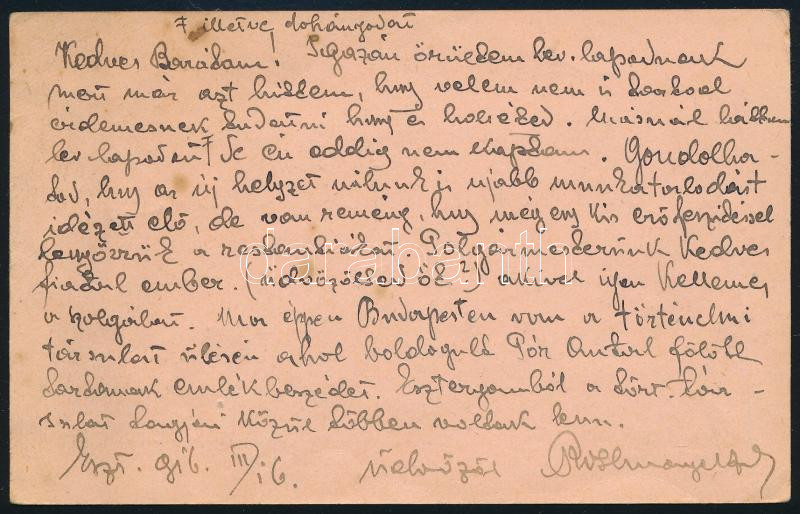 ≠ illetve dohányodat
Kedves Barátom! Igazán örültem lev. lapodnak
mert már azt hittem, hogy velem nem is
érdemesnek tudatni hogy és hol élsz. Másnál láttam
lev. lapodat ≠ de én eddig nem kaptam. Gondolha-
tod, hogy az új helyzet nálunk is ujabb munkatorlodást
idézett elő, de van remény, hogy még egy kis erőfeszítéssel
legyőzzük a Polgármesterünk kedves
fiatal ember. (üdvözölted őt?) akivel igen kellemes
a szolgálat. Ma éppen Budapesten van a történelmi
társulat ülésén ahol boldogult Pór Antal fölött
tartanak emlékbeszédet. Esztergomból a tört. tár-
sulat tagjai közül többen voltak lenn.
Eszt. 916. III/16. Üdvözöl
darabanth